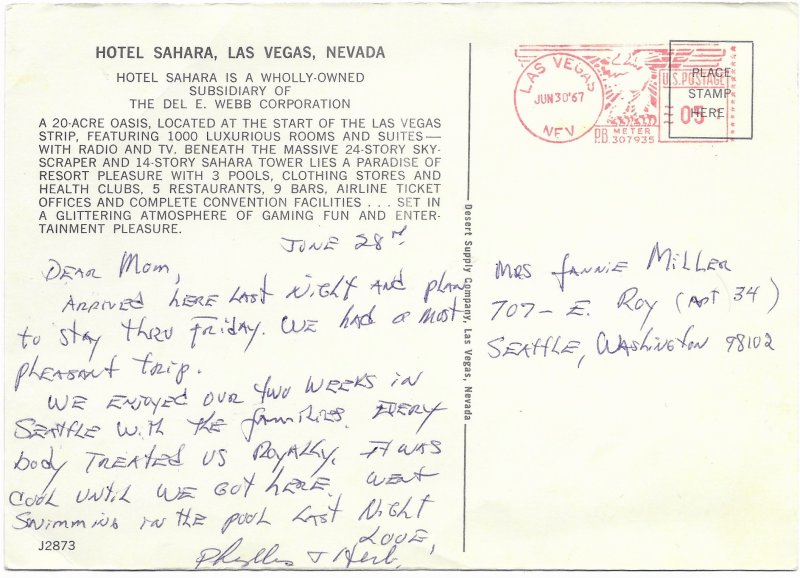 HOTEL SAHARA, LAS VEGAS, NEVADA
HOTEL SAHARA IS A WHOLLY-OWNED
SUBSIDIARY OF
THE DEL E. WEBB CORPORATION
A 20-ACRE OASIS, LOCATED AT THE START OF THE LAS VEGAS
STRIP, FEATURING 1000 LUXURIOUS ROOMS AND SUITES—
WITH RADIO AND TV. BENEATH THE MASSIVE 24-STORY SKY-
SCRAPER AND 14-STORY SAHARA TOWER LIES A PARADISE OF
RESORT PLEASURE WITH 3 POOLS, CLOTHING STORES AND
HEALTH CLUBS, 5 RESTAURANTS, 9 BARS, AIRLINE TICKET
OFFICES AND COMPLETE CONVENTION FACILITIES . . . SET IN
A GLITTERING ATMOSPHERE OF GAMING FUN AND ENTER-
TAINMENT PLEASURE.
JUNE 28th
DEAR MOM,
ARRIVED HERE LAST NIGHT AND PLAN
to STAY THRU FRIDAY. WE HAD A MOST
PLEASANT TRIP.
WE ENJOYED OUR TWO WEEKS IN
SEATTLE WITH THE FAMILIES. EVERY
BODY TREATED US ROYALLY. IT WAS
COOL UNTIL WE GOT HERE. WENT
SWIMMING IN THE POOL LAST NIGHT
LOVE,
Phyllis & Herb.
J2873
Desert Supply Company, Las Vegas, Nevada
LAS VEGAS
JUN 30 '67
NEV.
U.S. POSTAGE
05
P.B. METER
307935
PLACE
STAMP
HERE
MRS FANNIE MILLER
707- E. ROY (APT 34)
SEATTLE, WASHINGTON 98102